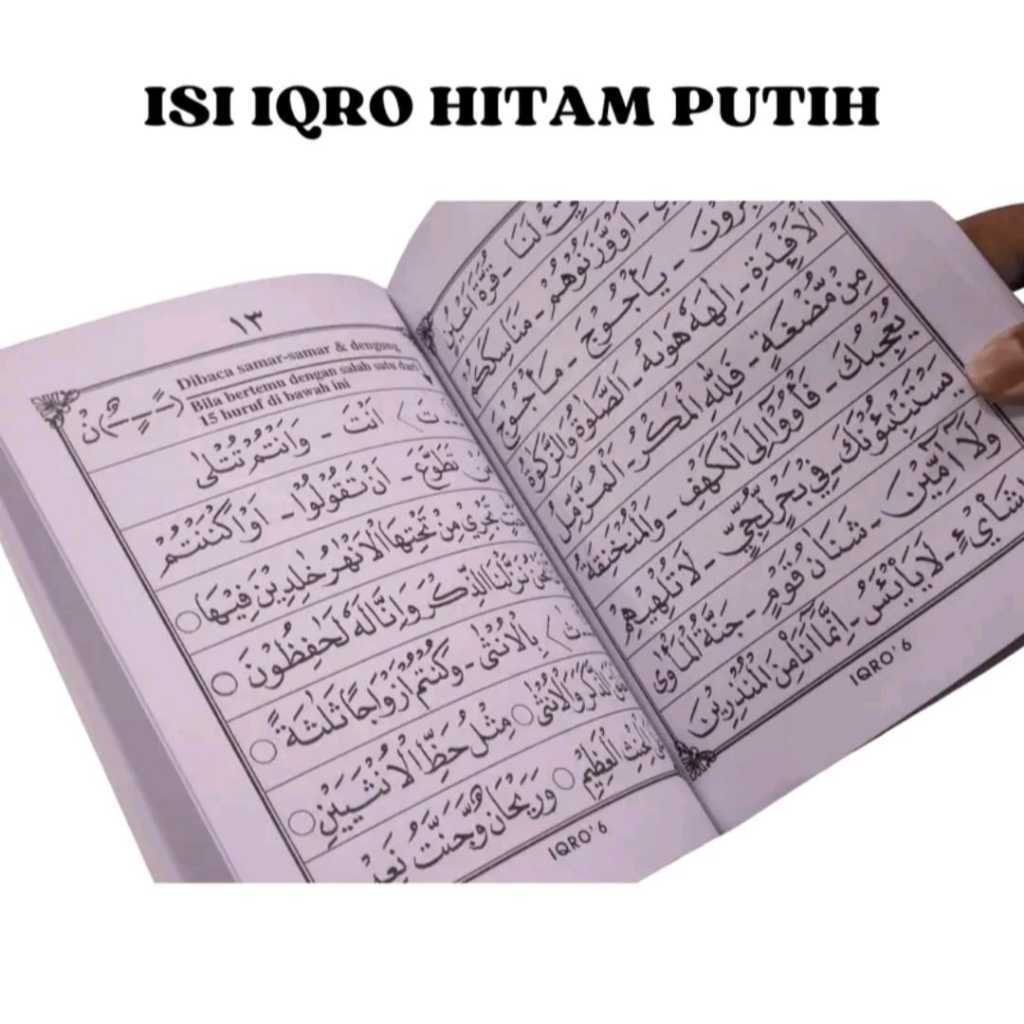 ISI IQRO HITAM PUTIH
١٣
Dibaca samar-samar & dengung
Bila bertemu dengan salah satu dari
15 huruf di bawah ini
أَنْتَ - وَأَنْتُمْ تُتْلَى
تَطَوَّعَ - أَنْ تَقُولُوا - أَوَاكُنْتُمْ
تَجْرِيْ مِنْ تَحْتِهَا الْاَنْهٰرُ خٰلِدِيْنَ فِيْهَا
نَزَّلْنَا الذِّكْرَ وَاِنَّا لَهٗ لَحٰفِظُوْنَ
بِالْاُنْثٰى - وَكُنْتُمْ اَزْوَاجًا ثَلٰثَةً
الذَّكَرَ وَالْاُنْثٰى مِثْلُ حَظِّ الْاُنْثَيَيْنِ
الْحِنْثِ الْعَظِيْمِ وَرَيْحَانٌ وَّجَنَّتُ نَعِيْ
IQRO' 6
لَنَا - قُرَّةَ اَعْيُنٍ
اَوْ وَّزَنُوْهُمْ - مَنَاسِكَكُمْ
يَأْجُوْجَ - مَأْجُوْجَ
الْاَفْئِدَةِ - اِلٰهَهٗ هَوٰىهُ - الصَّلٰوةَ وَالزَّكٰوةَ
مِنْ مُّضْغَةٍ - فَلِلّٰهِ الْمَكْرُ - الْمُزَّمِّلُ
يُعْجِبُكَ - فَأْوٗا اِلَى الْكَهْفِ - وَالْمُنْخَنِقَةُ
يَسْتَنْبِئُوْنَكَ - فِيْ بَحْرٍ لُّجِّيٍّ - لَا تُلْهِيْهِمْ
وَلَا اٰمِّيْنَ - شَنَاٰنُ قَوْمٍ - جَنَّةُ الْمَأْوٰى
لِشَايْءٍ - لَا يَايْئَسُ - اِنَّمَا اَنَا مِنَ الْمُنْذِرِيْنَ
IQRO' 6